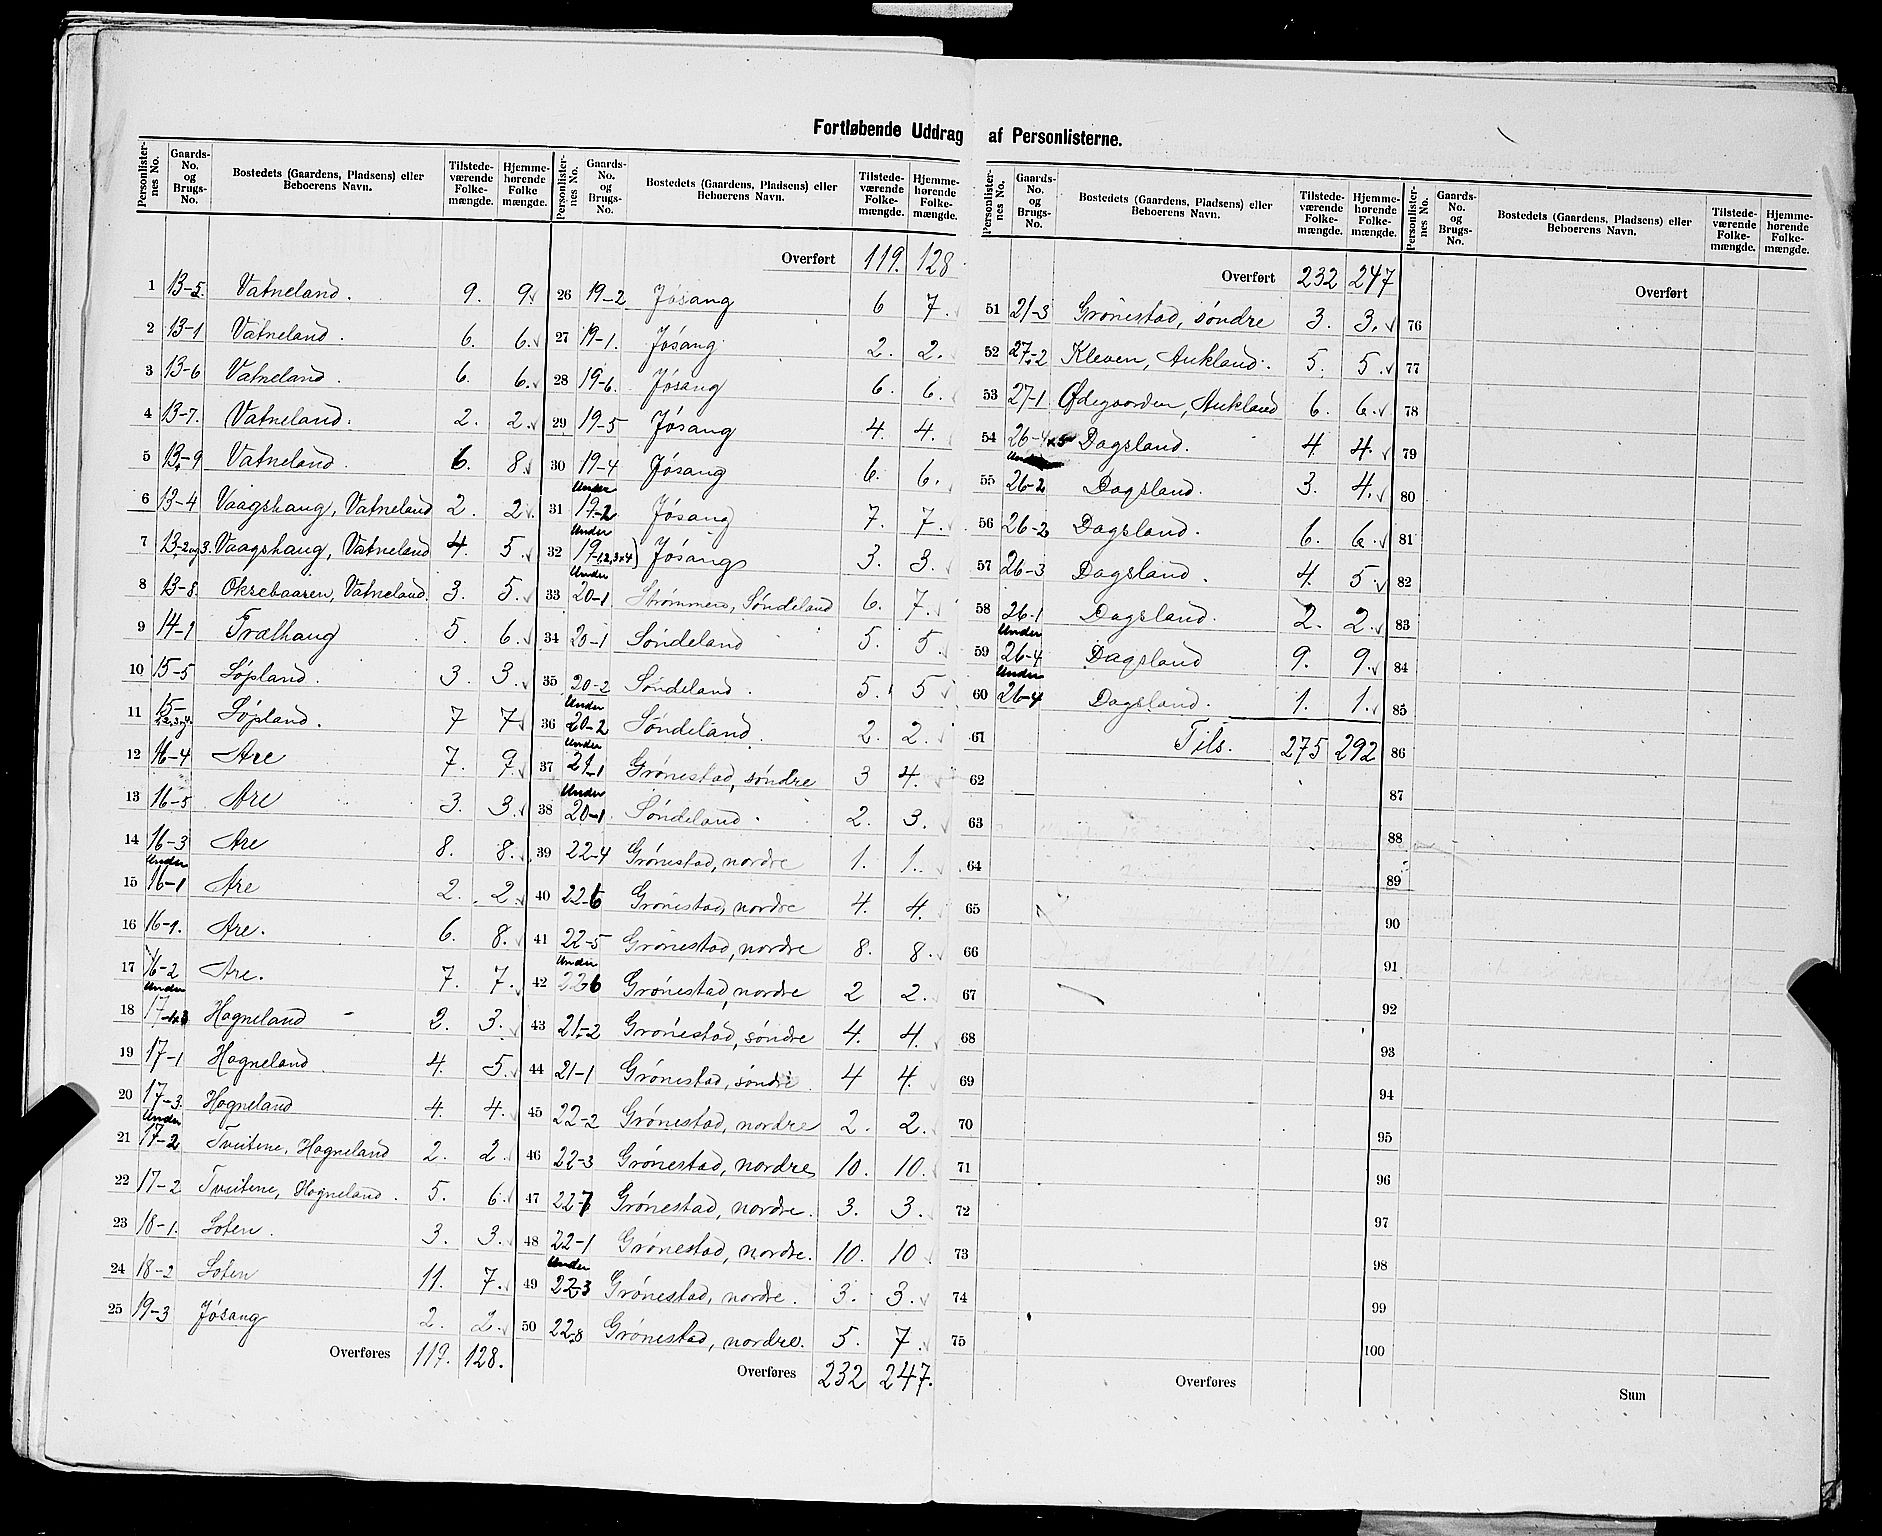 Fortløbende Uddrag af Personlisterne.
Personlisternes No. | Gaards-No. og Brugs-No. | Bostedets (Gaardens, Pladsens) eller Beboerens Navn. | Tilstedeværende Folkemængde. | Hjemmehørende Folkemængde.
1 13-5. Vatneland. 9. 9
2 13-1 Vatneland. 6. 6.
3 13-6 Vatneland. 6. 6.
4 13-7. Vatneland. 2. 2.
5 13-9 Vatneland. 6. 8
6 13-4 Vaagshaug, Vatneland 2. 2.
7 13-2 og 3. Vaagshaug, Vatneland 4. 5.
8 13-8. Oksebaasen, Vatneland. 3. 5.
9 14-1 Trælhaug 5. 6.
10 15-5 Søpland. 3. 3.
11 15- Søpland. 7 7
12 16-4 Are 7. 9.
13 16-5 Are 3. 3.
14 16-3 Are 8. 8.
15 Under 16-1 Are 2. 2
16 16-1. Are. 6. 8.
17 16-2 Are. 7. 7.
18 Under 17- Hagneland 2. 3.
19 17-1 Hagneland. 4. 5.
20 17-3. Hagneland 4. 4.
21 Under 17-2 Tveitene, Hagneland 2. 2
22 17-2 Tveitene, Hagneland. 5. 6.
23 18-1. Loten. 3. 3.
24 18-2 Loten 11. 7.
25 19-3 Jøsang 2. 2.
Overføres 119. 128.
Personlisternes No. | Gaards-No. og Brugs-No. | Bostedets (Gaardens, Pladsens) eller Beboerens Navn. | Tilstedeværende Folkemængde. | Hjemmehørende Folkemængde.
Overført 119. 128
26 19-2 Jøsang 6 7.
27 19-1. Jøsang 2. 2.
28 19-6. Jøsang 6 6.
29 19-5 Jøsang 4. 4.
30 19-4 Jøsang 6. 6.
31 Under 19-2 Jøsang 7. 7.
32 Under 19-1,2,3 & 4) Jøsang 3. 3.
33 Under 20-1 Strømmen, Søndeland 6. 7.
34 20-1 Søndeland 5. 5
35 20-2 Søndeland. 5. 5
36 Under 20-2 Søndeland. 2. 2.
37 Under 21-1 Grønestad, søndre 3 4.
38 Under 20-1 Søndeland. 2. 3.
39 22-4 Grønestad, nordre 1. 1.
40 22-6 Grønestad, nordre 4. 4.
41 22-5 Grønestad, nordre 8. 8.
42 Under 22-6 Grønestad, nordre 2 2.
43 21-2 Grønestad, søndre 4. 4.
44 21-1 Grønestad, søndre. 4 4.
45 22-2 Grønestad, nordre 2. 2.
46 22-3 Grønestad, nordre 10. 10.
47 22-7 Grønestad, nordre. 3. 3.
48 22-1 Grønestad, nordre. 10. 10
49 Under 22-3 Grønestad, nordre. 3. 3.
50 22-8 Grønestad, nordre. 5. 7.
Overføres 232 247.
Personlisternes No. | Gaards-No. og Brugs-No. | Bostedets (Gaardens, Pladsens) eller Beboerens Navn. | Tilstedeværende Folkemængde. | Hjemmehørende Folkemængde.
Overført 232 247
51 21-3 Grønestad, søndre 3. 3.
52 27-2 Kleven, Aukland. 5. 5.
53 27-1 Ødegaarden, Aukland 6. 6.
54 26-4 & 5 Dagsland. 4 4.
55 26-2 Dagsland. 3. 4.
56 26-2 Dagsland. 6. 6.
57 26-3 Dagsland. 4. 5.
58 26-1 Dagsland. 2. 2.
59 Under 26-4 Dagsland 9. 9.
60 Under 26-4 Dagsland. 1. 1.
61 Tils. 275 292
62
63
64
65
66
67
68
69
70
71
72
73
74
75
Overføres
Personlisternes No. | Gaards-No. og Brugs-No. | Bostedets (Gaardens, Pladsens) eller Beboerens Navn. | Tilstedeværende Folkemængde. | Hjemmehørende Folkemængde.
Overført
76
77
78
79
80
81
82
83
84
85
86
87
88
89
90
91
92
93
94
95
96
97
98
99
100
Sum